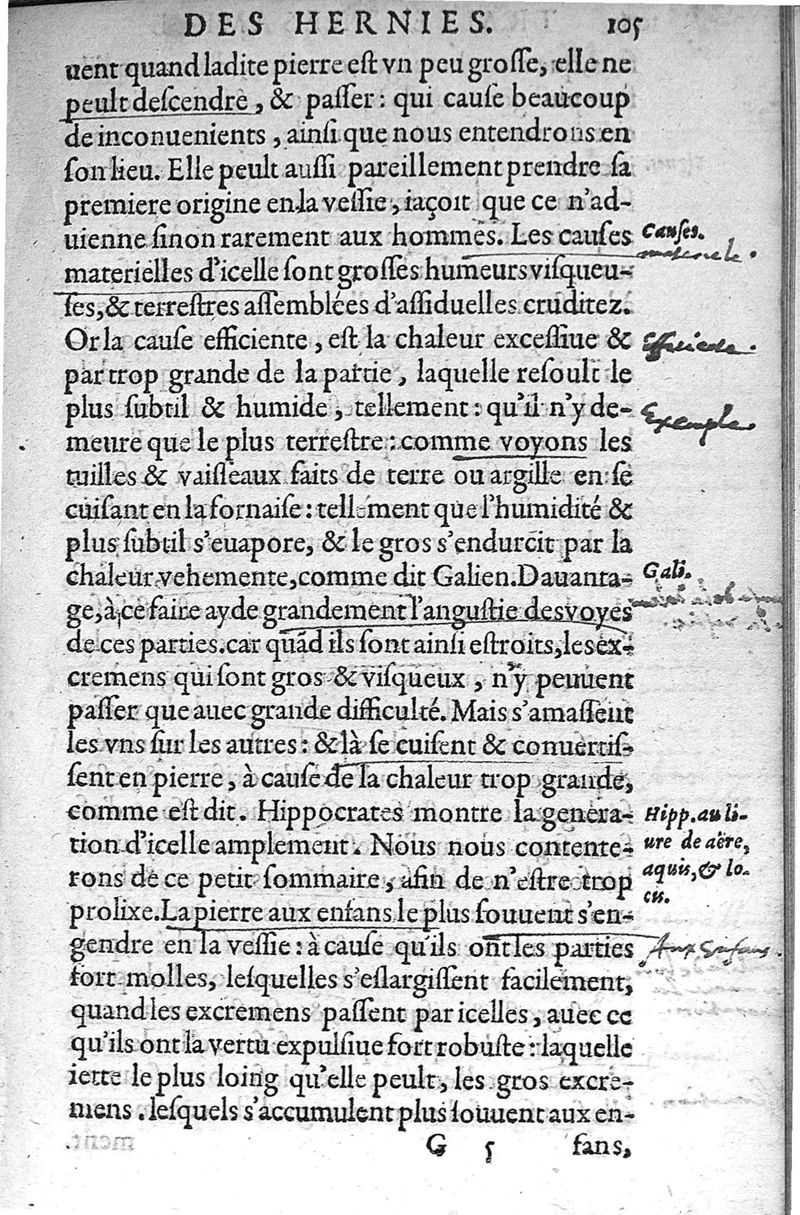 DES HERNIES. 105
uent quand ladite pierre est vn peu grosse, elle ne
peult descendre, & passer: qui cause beaucoup
de inconuenients, ainsi que nous entendrons en
son lieu. Elle peult aussi pareillement prendre sa
premiere origine en la vessie, iaçoit que ce n'ad-
uienne sinon rarement aux hommes. Les causes
Causes.
materielles d'icelle sont grosses humeurs visqueu-
ses, & terrestres assemblées d'assiduelles cruditez.
Or la cause efficiente, est la chaleur excessiue &
par trop grande de la partie, laquelle resoult le
plus subtil & humide, tellement: qu'il n'y de-
Exemple.
meure que le plus terrestre: comme voyons les
tuilles & vaisseaux faits de terre ou argille en se
cuisant en la fornaise: tellement que l'humidité &
plus subtil s'euapore, & le gros s'endurcit par la
chaleur vehemente, comme dit Galien. Dauanta-
Gali.
ge, à ce faire ayde grandement l'angustie des voyes
de ces parties. car quãd ils sont ainsi estroits, les ex-
cremens qui sont gros & visqueux, n'y peuuent
passer que auec grande difficulté. Mais s'amassent
les vns sur les autres: & là se cuisent & conuertis-
sent en pierre, à cause de la chaleur trop grande,
comme est dit. Hippocrates montre la genera-
tion d'icelle amplement. Nous nous contente-
rons de ce petit sommaire, afin de n'estre trop
Hipp. au li-
ure de aëre,
aquis, & lo-
cis.
prolixe. La pierre aux enfans le plus souuent s'en-
gendre en la vessie: à cause qu'ils ont les parties
Aux Enfans.
fort molles, lesquelles s'eslargissent facilement,
quand les excremens passent par icelles, auec ce
qu'ils ont la vertu expulsiue fort robuste: laquelle
iette le plus loing qu'elle peult, les gros excre-
mens. lesquels s'accumulent plus souuent aux en-
G 5 fans,